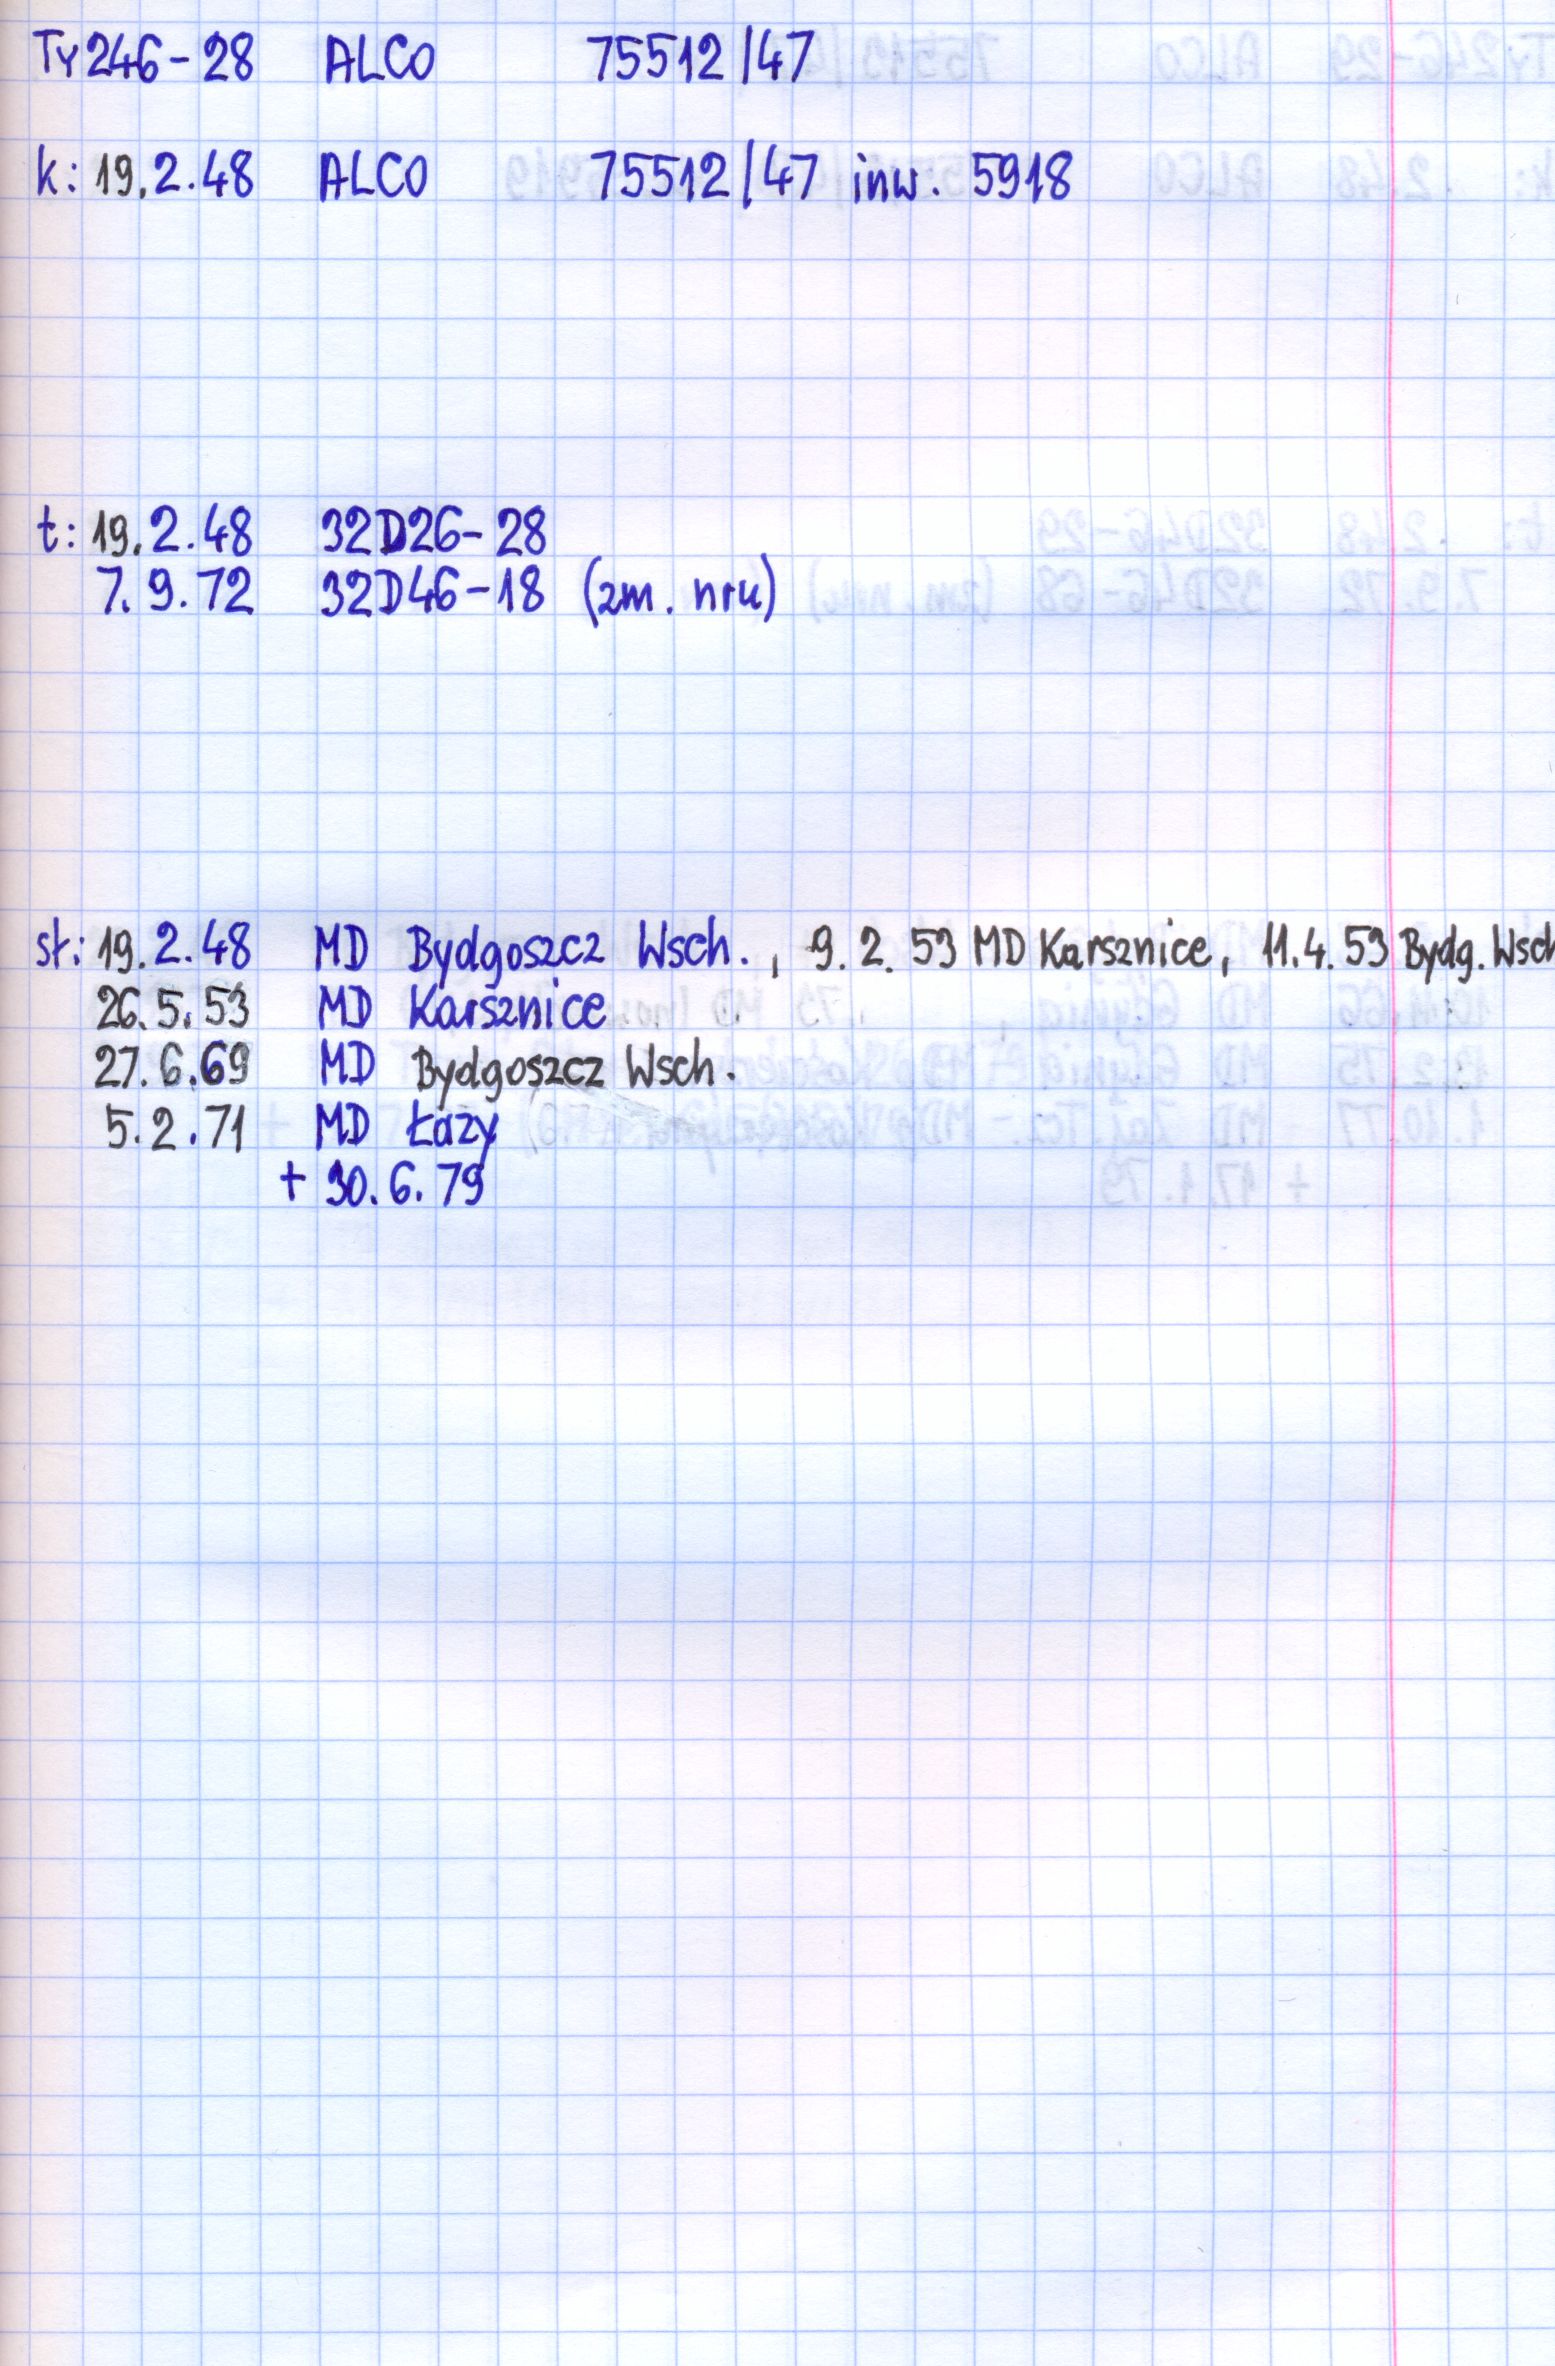 Ty246-28 ALCO 75512/47
k: 19.2.48 ALCO 75512/47 inw. 5918
t: 19.2.48 32D26-28
7.9.72 32D46-18 (zm. nru)
sł: 19.2.48 MD Bydgoszcz Wsch., 9.2.53 MD Karsznice, 11.4.53 Bydg. Wsch
26.5.53 MD Karsznice
27.6.69 MD Bydgoszcz Wsch.
5.2.71 MD Łazy
+ 30.6.79